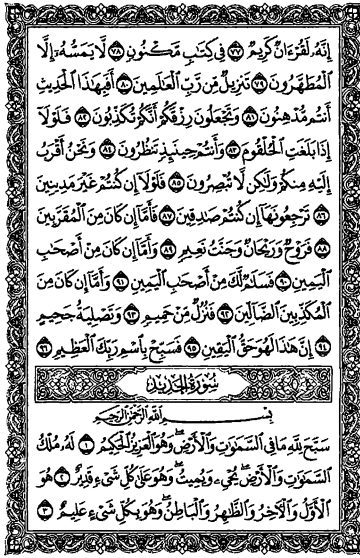 إِنَّهُۥ لَقُرْءَانٌ كَرِيمٌ ٧٧ فِى كِتَٰبٍ مَّكْنُونٍ ٧٨ لَّا يَمَسُّهُۥٓ إِلَّا
ٱلْمُطَهَّرُونَ ٧٩ تَنزِيلٌ مِّن رَّبِّ ٱلْعَٰلَمِينَ ٨٠ أَفَبِهَٰذَا ٱلْحَدِيثِ
أَنتُم مُّدْهِنُونَ ٨١ وَتَجْعَلُونَ رِزْقَكُمْ أَنَّكُمْ تُكَذِّبُونَ ٨٢ فَلَوْلَآ
إِذَا بَلَغَتِ ٱلْحُلْقُومَ ٨٣ وَأَنتُمْ حِينَئِذٍ تَنظُرُونَ ٨٤ وَنَحْنُ أَقْرَبُ
إِلَيْهِ مِنكُمْ وَلَٰكِن لَّا تُبْصِرُونَ ٨٥ فَلَوْلَآ إِن كُنتُمْ غَيْرَ مَدِينِينَ
٨٦ تَرْجِعُونَهَآ إِن كُنتُمْ صَٰدِقِينَ ٨٧ فَأَمَّآ إِن كَانَ مِنَ ٱلْمُقَرَّبِينَ
٨٨ فَرَوْحٌ وَرَيْحَانٌ وَجَنَّتُ نَعِيمٍ ٨٩ وَأَمَّآ إِن كَانَ مِنْ أَصْحَٰبِ
ٱلْيَمِينِ ٩٠ فَسَلَٰمٌ لَّكَ مِنْ أَصْحَٰبِ ٱلْيَمِينِ ٩١ وَأَمَّآ إِن كَانَ مِنَ
ٱلْمُكَذِّبِينَ ٱلضَّآلِّينَ ٩٢ فَنُزُلٌ مِّنْ حَمِيمٍ ٩٣ وَتَصْلِيَةُ جَحِيمٍ
٩٤ إِنَّ هَٰذَا لَهُوَ حَقُّ ٱلْيَقِينِ ٩٥ فَسَبِّحْ بِٱسْمِ رَبِّكَ ٱلْعَظِيمِ ٩٦
سُورَةُ الْحَدِيدِ
بِسْمِ ٱللَّهِ ٱلرَّحْمَٰنِ ٱلرَّحِيمِ
سَبَّحَ لِلَّهِ مَا فِى ٱلسَّمَٰوَٰتِ وَٱلْأَرْضِ ۖ وَهُوَ ٱلْعَزِيزُ ٱلْحَكِيمُ ١ لَهُۥ مُلْكُ
ٱلسَّمَٰوَٰتِ وَٱلْأَرْضِ ۖ يُحْىِۦ وَيُمِيتُ ۖ وَهُوَ عَلَىٰ كُلِّ شَىْءٍ قَدِيرٌ ٢ هُوَ
ٱلْأَوَّلُ وَٱلْءَاخِرُ وَٱلظَّٰهِرُ وَٱلْبَاطِنُ ۖ وَهُوَ بِكُلِّ شَىْءٍ عَلِيمٌ ٣